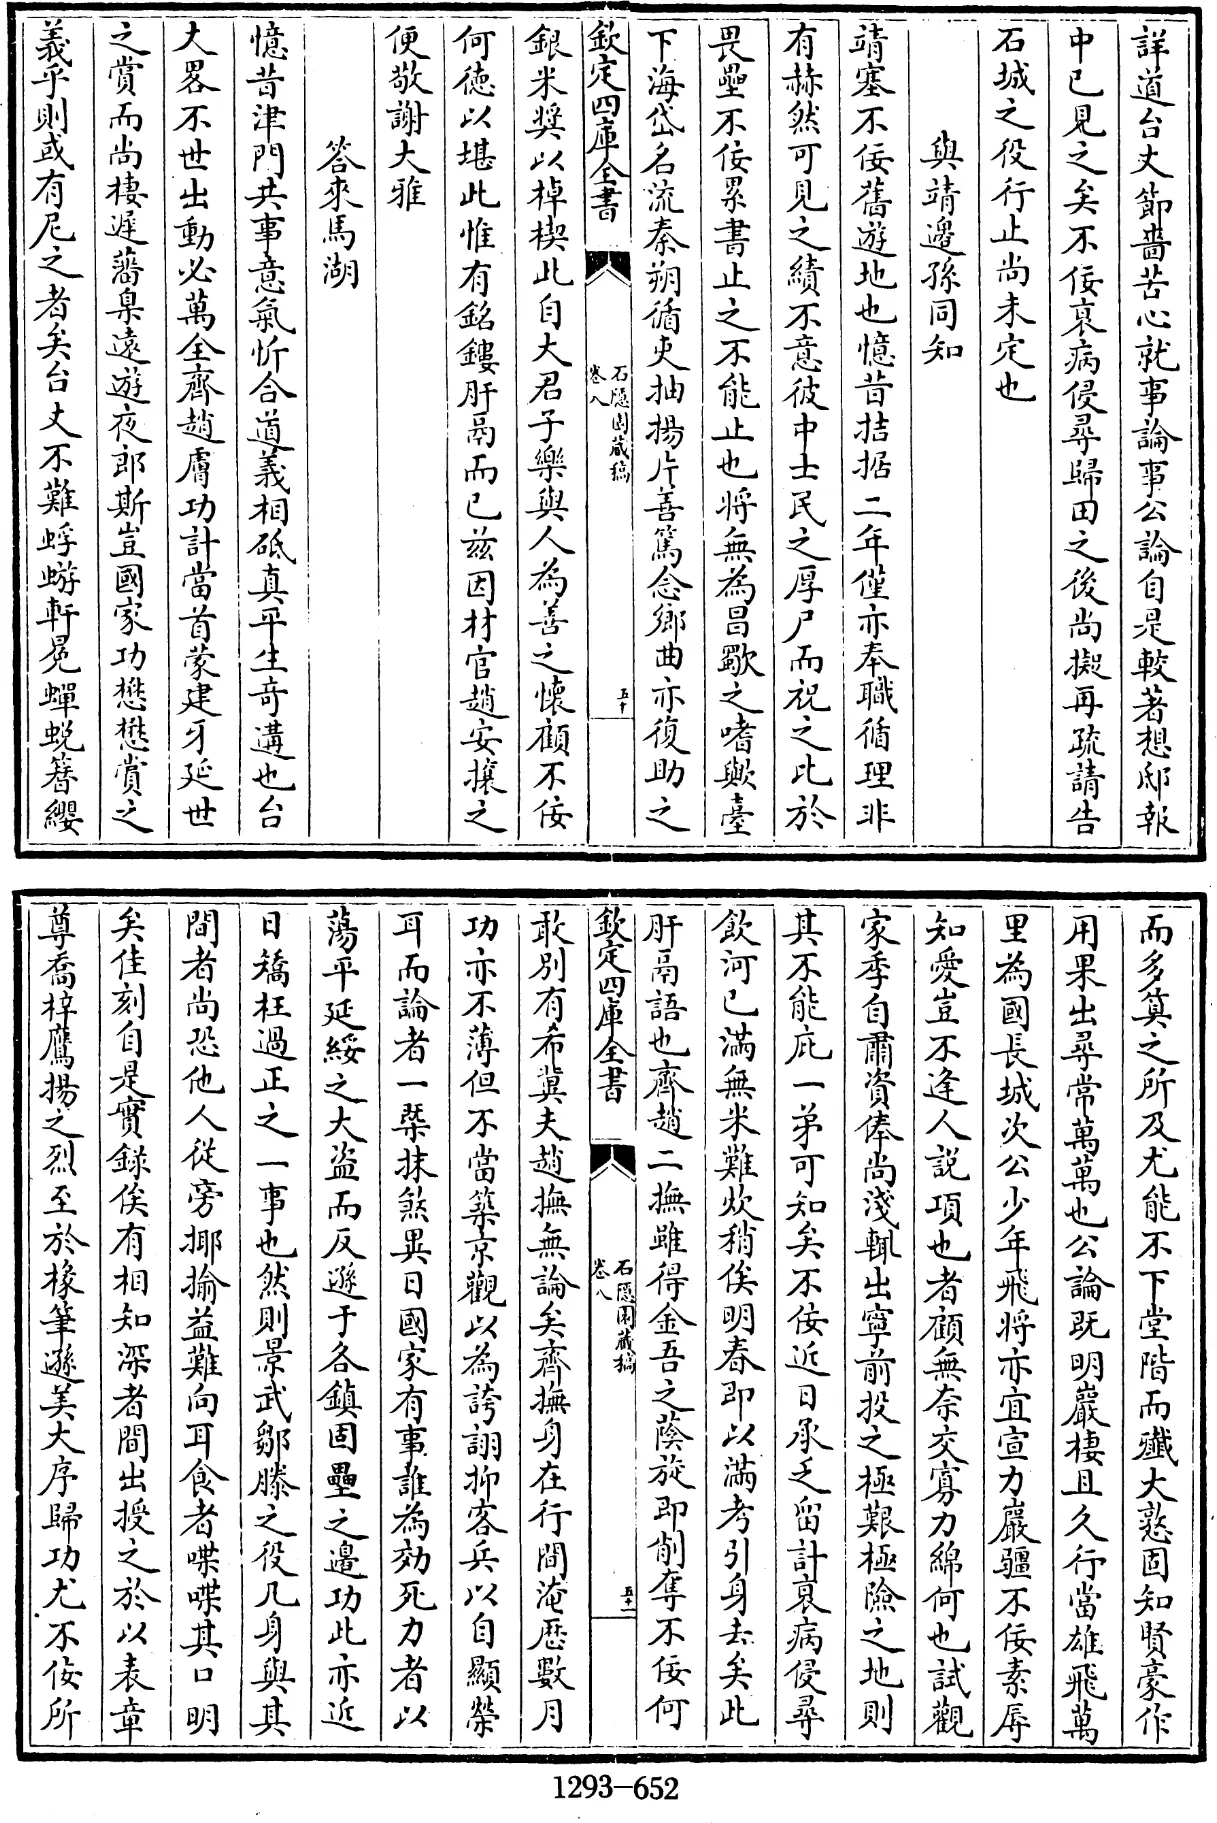 詳道台丈節嗇苦心就事論事公論自是較著想邸報
中已見之矣不佞衰病侵尋歸田之後尚擬再疏請告
石城之役行止尚未定也
與靖邊孫同知
靖塞不佞舊遊地也憶昔拮据二年僅亦奉職循理非
有赫然可見之績不意彼中士民之厚尸而祝之比於
畏壘不佞累書止之不能止也將無為昌歜之嗜歟臺
下海岱名流秦朔循吏抽揚片善篤念鄉曲亦復助之
欽定四庫全書
石隱園藏稿
卷八
五十
銀米奬以棹楔此自大君子樂與人為善之懷顧不佞
何德以堪此惟有銘鏤肝鬲而已兹因材官趙安攘之
便敬謝大雅
答來馬湖
憶昔津門共事意氣忻合道義相砥真平生竒遘也台
大畧不世出動必萬全齊趙膚功計當首蒙建牙延世
之賞而尚棲遲藩臬遠遊夜郎斯豈國家功懋懋賞之
義乎則或有尼之者矣台丈不難蜉蝣軒冕蟬蛻簪纓
而多筭之所及尤能不下堂階而殲大憝固知賢豪作
用果出尋常萬萬也公論既明巖棲且久行當雄飛萬
里為國長城次公少年飛將亦宜宣力巖疆不佞素辱
知愛豈不逢人説項也者顧無奈交寡力綿何也試觀
家季自肅資俸尚淺輒出寧前投之極艱極險之地則
其不能庇一弟可知矣不佞近日承乏留計衰病侵尋
飲河已滿無米難炊稍俟明春即以滿考引身去矣此
肝鬲語也齊趙二撫雖得金吾之䕃旋即削奪不佞何
欽定四庫全書
石隱園藏稿
卷八
五十一
敢別有希冀夫趙撫無論矣齊撫身在行間淹歷數月
功亦不薄但不當築京觀以為誇詡抑客兵以自顯榮
耳而論者一槩抹煞異日國家有事誰為効死力者以
蕩平延綏之大盜而反遜于各鎮固壘之邉功此亦近
日矯枉過正之一事也然則景武鄒滕之役凡身與其
間者尚恐他人從旁揶揄益難向耳食者喋喋其口明
矣佳刻自是實録俟有相知深者間出授之於以表章
尊喬梓鷹揚之烈至於椽筆遜美大序歸功尤不佞所
1293-652